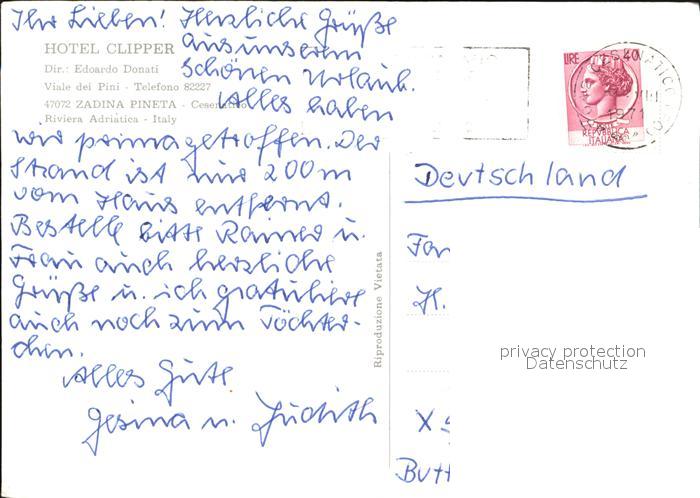 Ihr Lieben! Herzliche Grüße
aus unserem
schönen Urlaub.
Alles haben
wir prima getroffen. Der
Strand ist nur 200 m
vom Haus entfernt.
Bestelle bitte Rainer u.
Frau auch herzliche
Grüße u. ich gratuliere
auch noch zum Töchter-
chen.
Alles Gute
Gesina u. Judith
HOTEL CLIPPER
Dir.: Edoardo Donati
Viale dei Pini - Telefono 82227
47072 ZADINA PINETA - Cesenatico
Riviera Adriatica - Italy
Riproduzione Vietata
LIRE 40
REPVBBLICA
ITALIANA
Deutschland
Fam
H.
X
Butt
privacy protection
Datenschutz